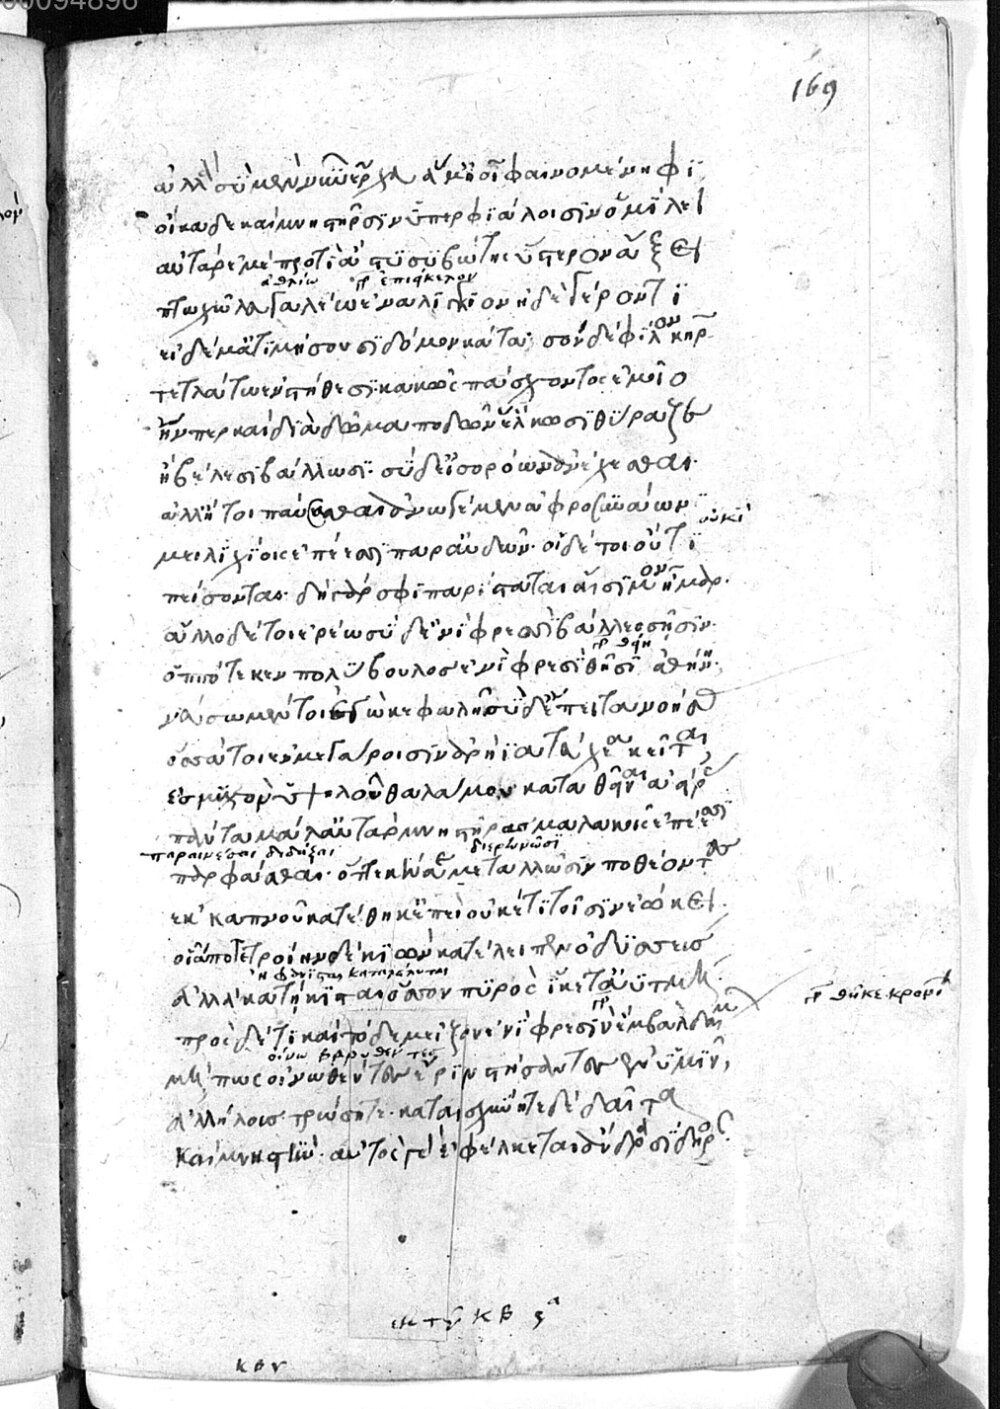 169
ἀλλὰ σὺ μὲν νῦν ἔρχευ ἅμ' ἠοῖ φαινομένηφι
οἴκαδε καὶ μνηστῆρσιν ὑπερφιάλοισιν ὁμίλει
αὐτὰρ ἐμὲ προτὶ ἄστυ συβώτης ὕστερον ἄξει
ἀθλίω γρ ἐπιείκελον
πτωχῶ λευγαλέω ἐναλίγκιον ἠδὲ γέροντι
εἰ δέ μ' ἀτιμήσουσι δόμον κάτα· σὸν δὲ φίλον κῆρ
τετλάτω ἐν στήθεσι· κακῶς πάσχοντος ἐμεῖο
ἤν περ καὶ διὰ δῶμα ποδῶν ἕλκωσι θύραζε
ἢ βέλεσι βάλλωσι· σὺ δ' εἰσορόων ἀνέχεσθαι·
ἀλλ' ἤτοι παύεσθαι ἀνωγέμεν ἀφροσυνάων
οὐκὶ
μειλιχίοις ἐπέεσσι παραυδῶν· οἱ δέ τοι οὔτι
πείσονται· δὴ γάρ σφι παρίσταται αἴσιμον ἦμαρ·
ἄλλο δέ τοι ἐρέω σὺ δ' ἐνὶ φρεσὶ βάλλεο σῇσιν·
ὁππότε κεν πολύβουλος ἐνὶ φρεσὶ θῇσι ἀθήνη·
νεύσω μέν τοι ἐγὼ κεφαλῇ σὺ δ' ἔπειτα νοήσας
ὅσσα τοι ἐν μεγάροισιν ἀρήϊα τεύχεα κεῖται,
ἐς μυχὸν ὑψηλοῦ θαλάμου καταθεῖναι ἀείρας
πάντα μάλ' αὐτὰρ μνηστῆρας μαλακοῖς ἐπέεσσι
παραινέσαι διερωτῶσι
παρφάσθαι· ὅτε κέν σε μεταλλῶσιν ποθέοντες
ἐκ καπνοῦ κατέθηκ' ἐπεὶ οὐκέτι τοῖσιν ἐῴκει·
οἷά ποτε τροίηνδε κιὼν κατέλειπεν ὀδυσσεύς
ἀλλὰ κατήκισται ὅσσον πυρὸς ἵκετ' ἀϋτμή·
γρ θῆκε κρονίων
πρὸς δέ τι καὶ τόδε μεῖζον ἐνὶ φρεσὶν ἔμβαλε δαίμων
οἴνω βαρυθέντες
μή πως οἰνωθέντες ἔριν στήσαντες ἐν ὑμῖν,
ἀλλήλους τρώσητε· καταισχύνητε δὲ δαῖτα
καὶ μνηστύν· αὐτὸς γὰρ ἐφέλκεται ἄνδρα σίδηρος·